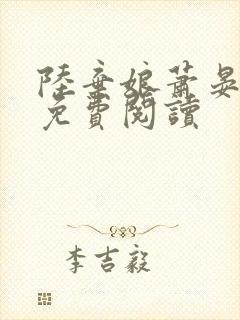 陸棄娘蕭晏
免費閱讀
李吉毅